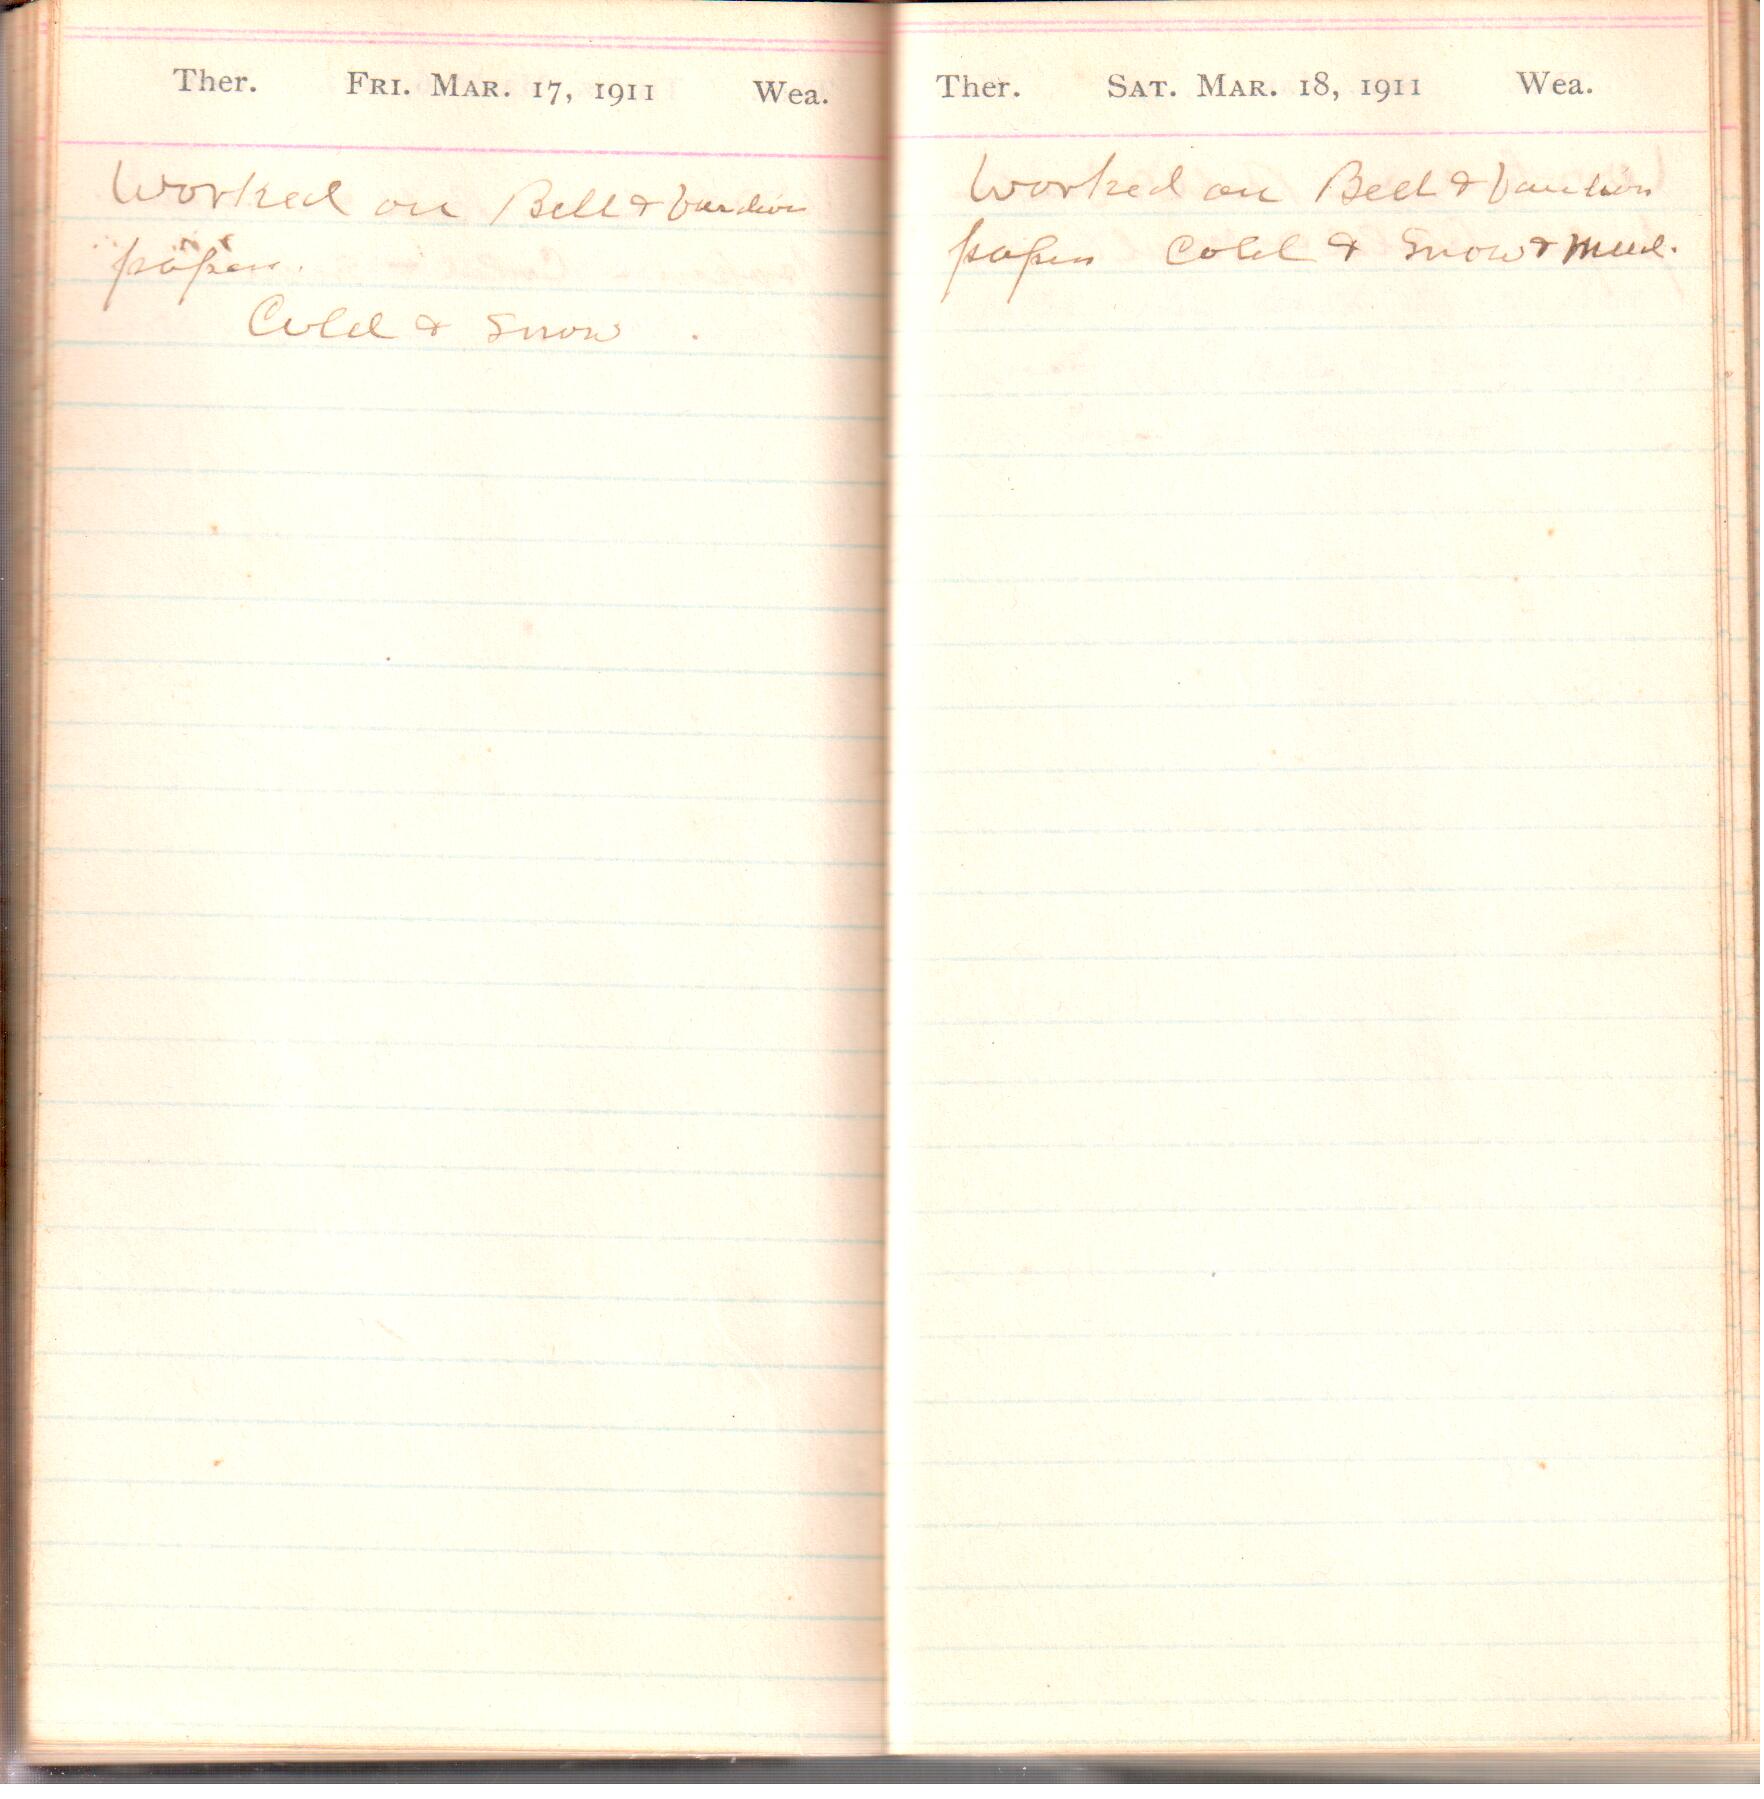 Ther. Fri. Mar. 17, 1911 Wea.
Worked on Bell &
papers.
Cold & Snow.
Ther. Sat. Mar. 18, 1911 Wea.
Worked on Bell &
papers Cold & Snow & Mud.